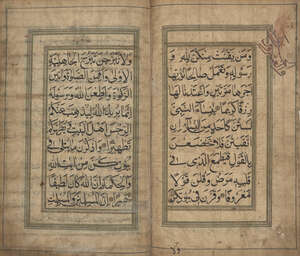 ومن يقنت منكن لله و
رسوله وتعمل صالحا نؤتها
اجرها مرتين واعتدنا لها
رزقا كريما يا نساء النبي
لستن كاحد من النساء ان
اتقيتن فلا تخضعن
بالقول فيطمع الذي في
قلبه مرض وقلن قولا
معروفا وقرن في بيوتكن
ولا تبرجن تبرج الجاهلية
الاولى واقمن الصلوة واتين
الزكوة واطعن الله ورسوله
انما يريد الله ليذهب عنكم
الرجس اهل البيت ويطهركم
تطهيرا واذكرن ما يتلى في
بيوتكن من ايات الله
والحكمة ان الله كان لطيفا
خبيرا ان المسلمين والمسلمات